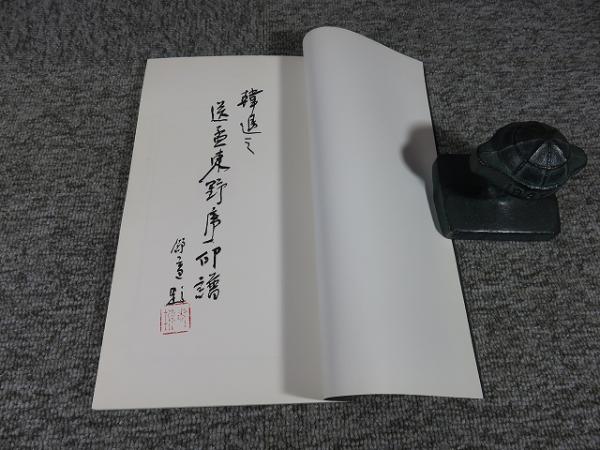 韓退之
送孟東野序印譜